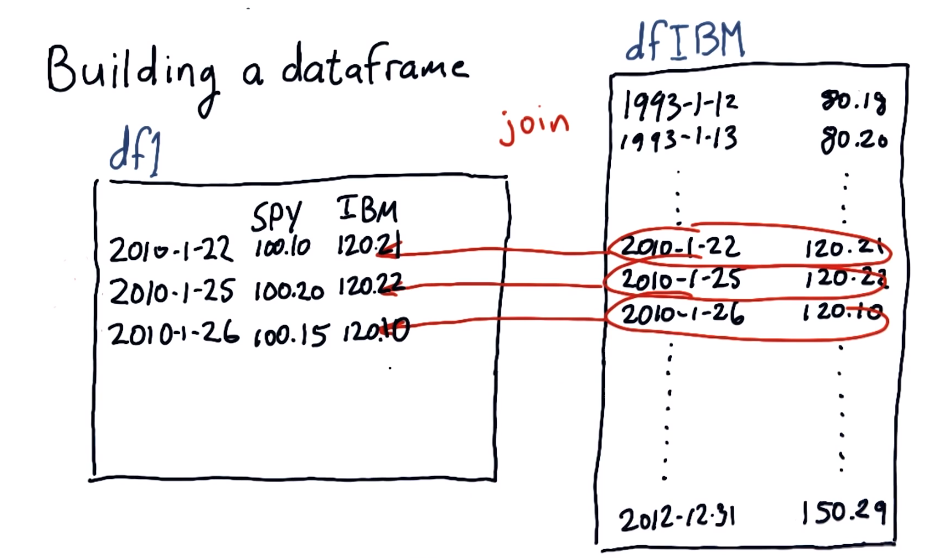 Building a dataframe
df1
SPY IBM
2010-1-22 100.10 120.21
2010-1-25 100.20 120.22
2010-1-26 100.15 120.10
join
dfIBM
1993-1-12 80.19
1993-1-13 80.20
2010-1-22 120.21
2010-1-25 120.22
2010-1-26 120.10
2012-12-31 150.29